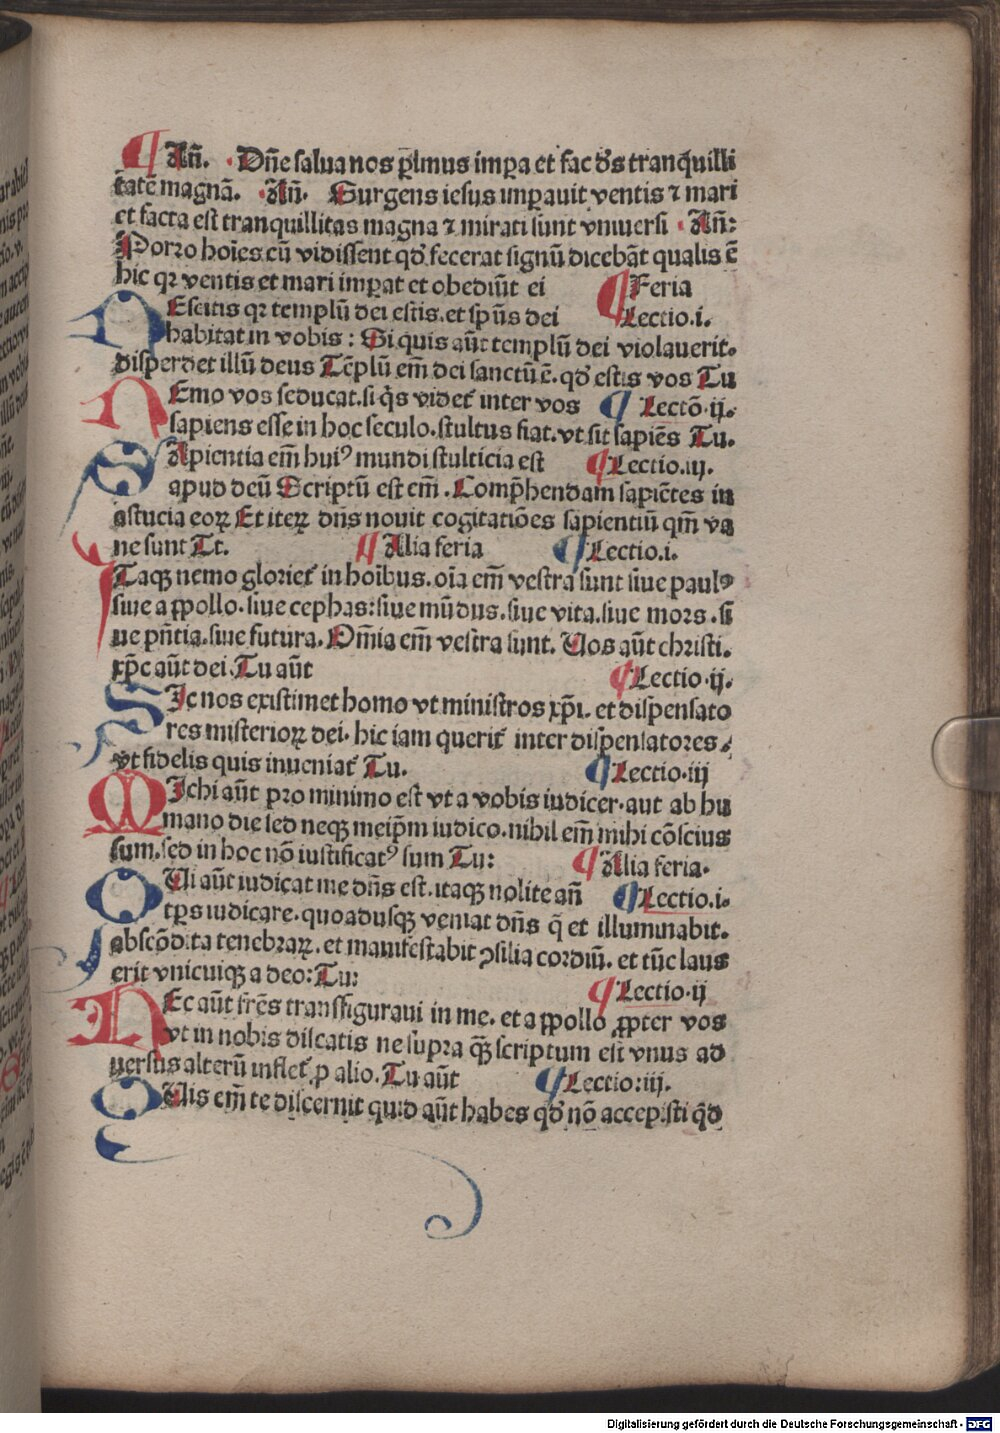 ¶ Añ. Dñe salua nos p̱imus impa et fac ds̄ tranquilli
tatē magnā. Añ. Surgens iesus imꝑauit ventis ⁊ mari
et facta est tranquillitas magna ⁊ mirati sunt vniuersi Añ:
Porro hoīes cū vidissent qď fecerat signū dicebāt qualis ē
hic qꝛ ventis et mari imꝑat et obediūt ei ¶ Feria
NEscitis qꝛ templū dei estis. et spūs dei ¶ Lectio.i.
habitat in vobis : Si quis aūt templū dei violauerit.
disperdet illū deus Tēplū em̄ dei sanctū ē. qď estis vos Tu
NEmo vos seducat. si q̇s videt̄ inter vos ¶ Lectō.ij.
sapiens esse in hoc seculo. stultus fiat. vt sit sapiēs Tu.
SApientia em̄ huiꝰ mundi stulticia est ¶ Lectio.iij.
apud deū Scriptū est em̄. Comp̄hendam sapiētes in
astucia eoꝝ Et iteꝝ dñs nouit cogitatiōes sapientiū qm̄ va
ne sunt Tt. ¶ Alia feria ¶ Lectio.i.
ITaqꝫ nemo gloriet̄ in hoībus. oīa em̄ vestra sunt siue paulꝰ
siue aꝑpollo. siue cephas: siue mūdus. siue vita. siue mors. si
ue pn̄tia. siue futura. Om̄ia em̄ vestra sunt. Uos aūt christi.
xp̄c aūt dei. Tu aūt ¶ Lectio.ij.
SIc nos existimet homo vt ministros xp̄i. et dispensato
res misterioꝝ dei. hic iam querit̄ inter dispensatores.
vt fidelis quis inueniat̄ Tu. ¶ Lectio.iij
MIchi aūt pro minimo est vt a vobis iudicer. aut ab hu
mano die sed neqꝫ meip̄m iudico. nihil em̄ mihi cōscius
sum. sed in hoc nō iustificatꝰ sum Tu: ¶ Alia feria.
QUi aūt iudicat me dñs est. itaqꝫ nolite añ ¶ Lectio.i.
tꝑs iudicare. quoadusqꝫ veniat dñs q̄ et illuminabit.
abscōdita tenebraꝝ. et manifestabit ꝯsilia cordiū. et tūc laus
erit vnicuiqꝫ a deo: Tu: ¶ Lectio.ij
HEc aūt fr̄es transfiguraui in me. et aꝑpollo ꝓpter vos
vt in nobis discatis ne supra qꝫ̄ scriptum est vnus ad
uersus alterū inflet̄. p alio. Tu aūt ¶ Lectio:iij.
QUis em̄ te discernit quid aūt habes qď nō accepisti qď
Digitalisierung gefördert durch die Deutsche Forschungsgemeinschaft - DFG